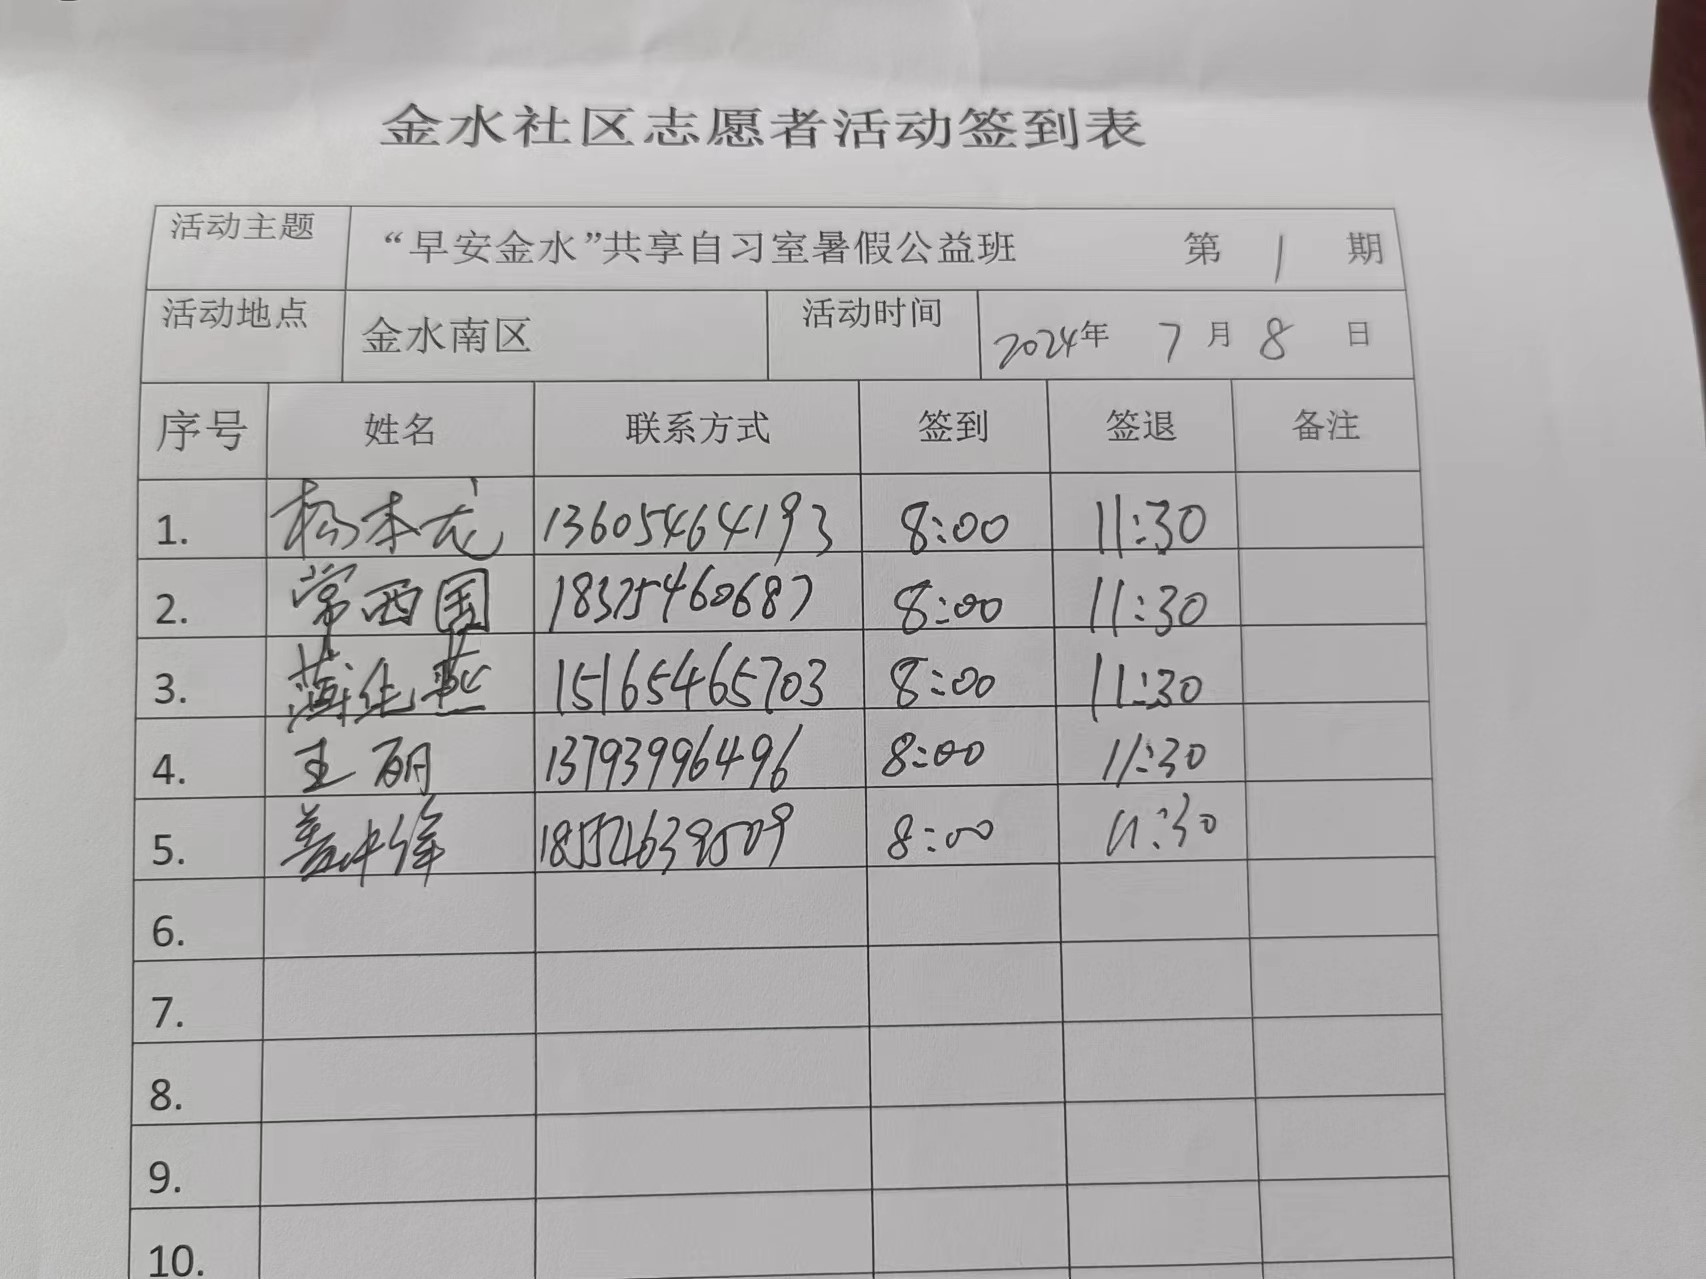 金水社区志愿者活动签到表
活动主题 “早安金水”共享自习室暑假公益班 第 1 期
活动地点 金水南区 活动时间 2024年 7月 8 日
序号 姓名 联系方式 签到 签退 备注
1. 13605464193 8:00 11:30
2. 常西国 18375460687 8:00 11:30
3. 薄化燕 15165465703 8:00 11:30
4. 王丽 13793996496 8:00 11:30
5. 8:00 11:30
6.
7.
8.
9.
10.